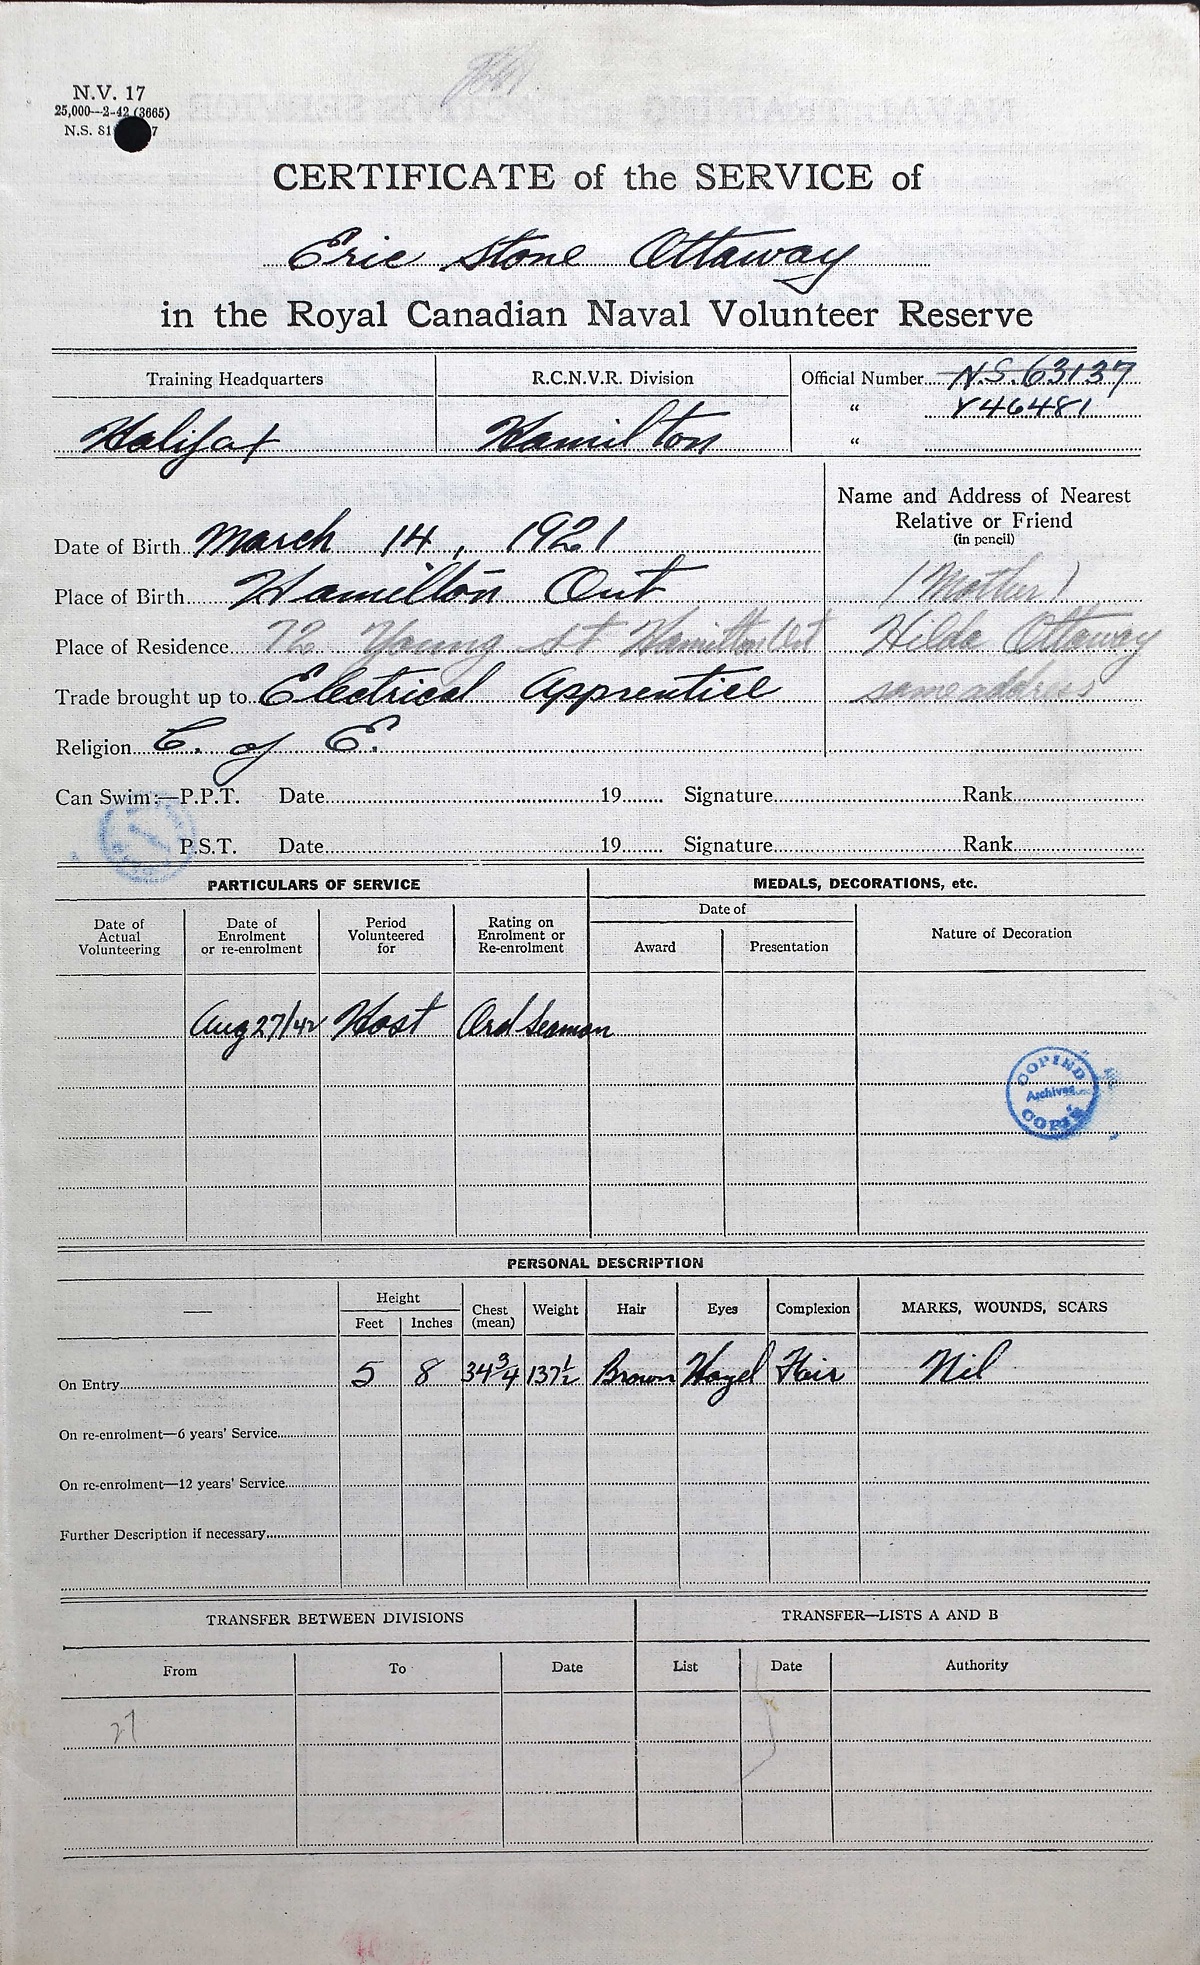 N.V. 17
25,000—2-42 (3665)
N.S. 81 7
CERTIFICATE of the SERVICE of
Eric Stone Ottaway
in the Royal Canadian Naval Volunteer Reserve
Training Headquarters R.C.N.V.R. Division Official Number N.S. 63137
" V46481
Halifax Hamilton "
Name and Address of Nearest
Relative or Friend
(in pencil)
Date of Birth March 14, 1921
Place of Birth Hamilton Ont (Mother)
Place of Residence 72 Young St Hamilton Ont Hilda Ottaway
Trade brought up to Electrical Apprentice same address
Religion C. of E.
Can Swim:—P.P.T. Date 19 Signature Rank
P.S.T. Date 19 Signature Rank
PARTICULARS OF SERVICE MEDALS, DECORATIONS, etc.
Date of Actual Volunteering Date of Enrolment or re-enrolment Period Volunteered for Rating on Enrolment or Re-enrolment Date of Award Presentation Nature of Decoration
Aug 27/42 Host Ord Seaman
COPIED
Archives
COPIE
PERSONAL DESCRIPTION
— Height Feet Inches Chest (mean) Weight Hair Eyes Complexion MARKS, WOUNDS, SCARS
On Entry 5 8 34 3/4 137 1/2 Brown Hazel Fair Nil
On re-enrolment—6 years' Service
On re-enrolment—12 years' Service
Further Description if necessary
TRANSFER BETWEEN DIVISIONS TRANSFER—LISTS A AND B
From To Date List Date Authority
27